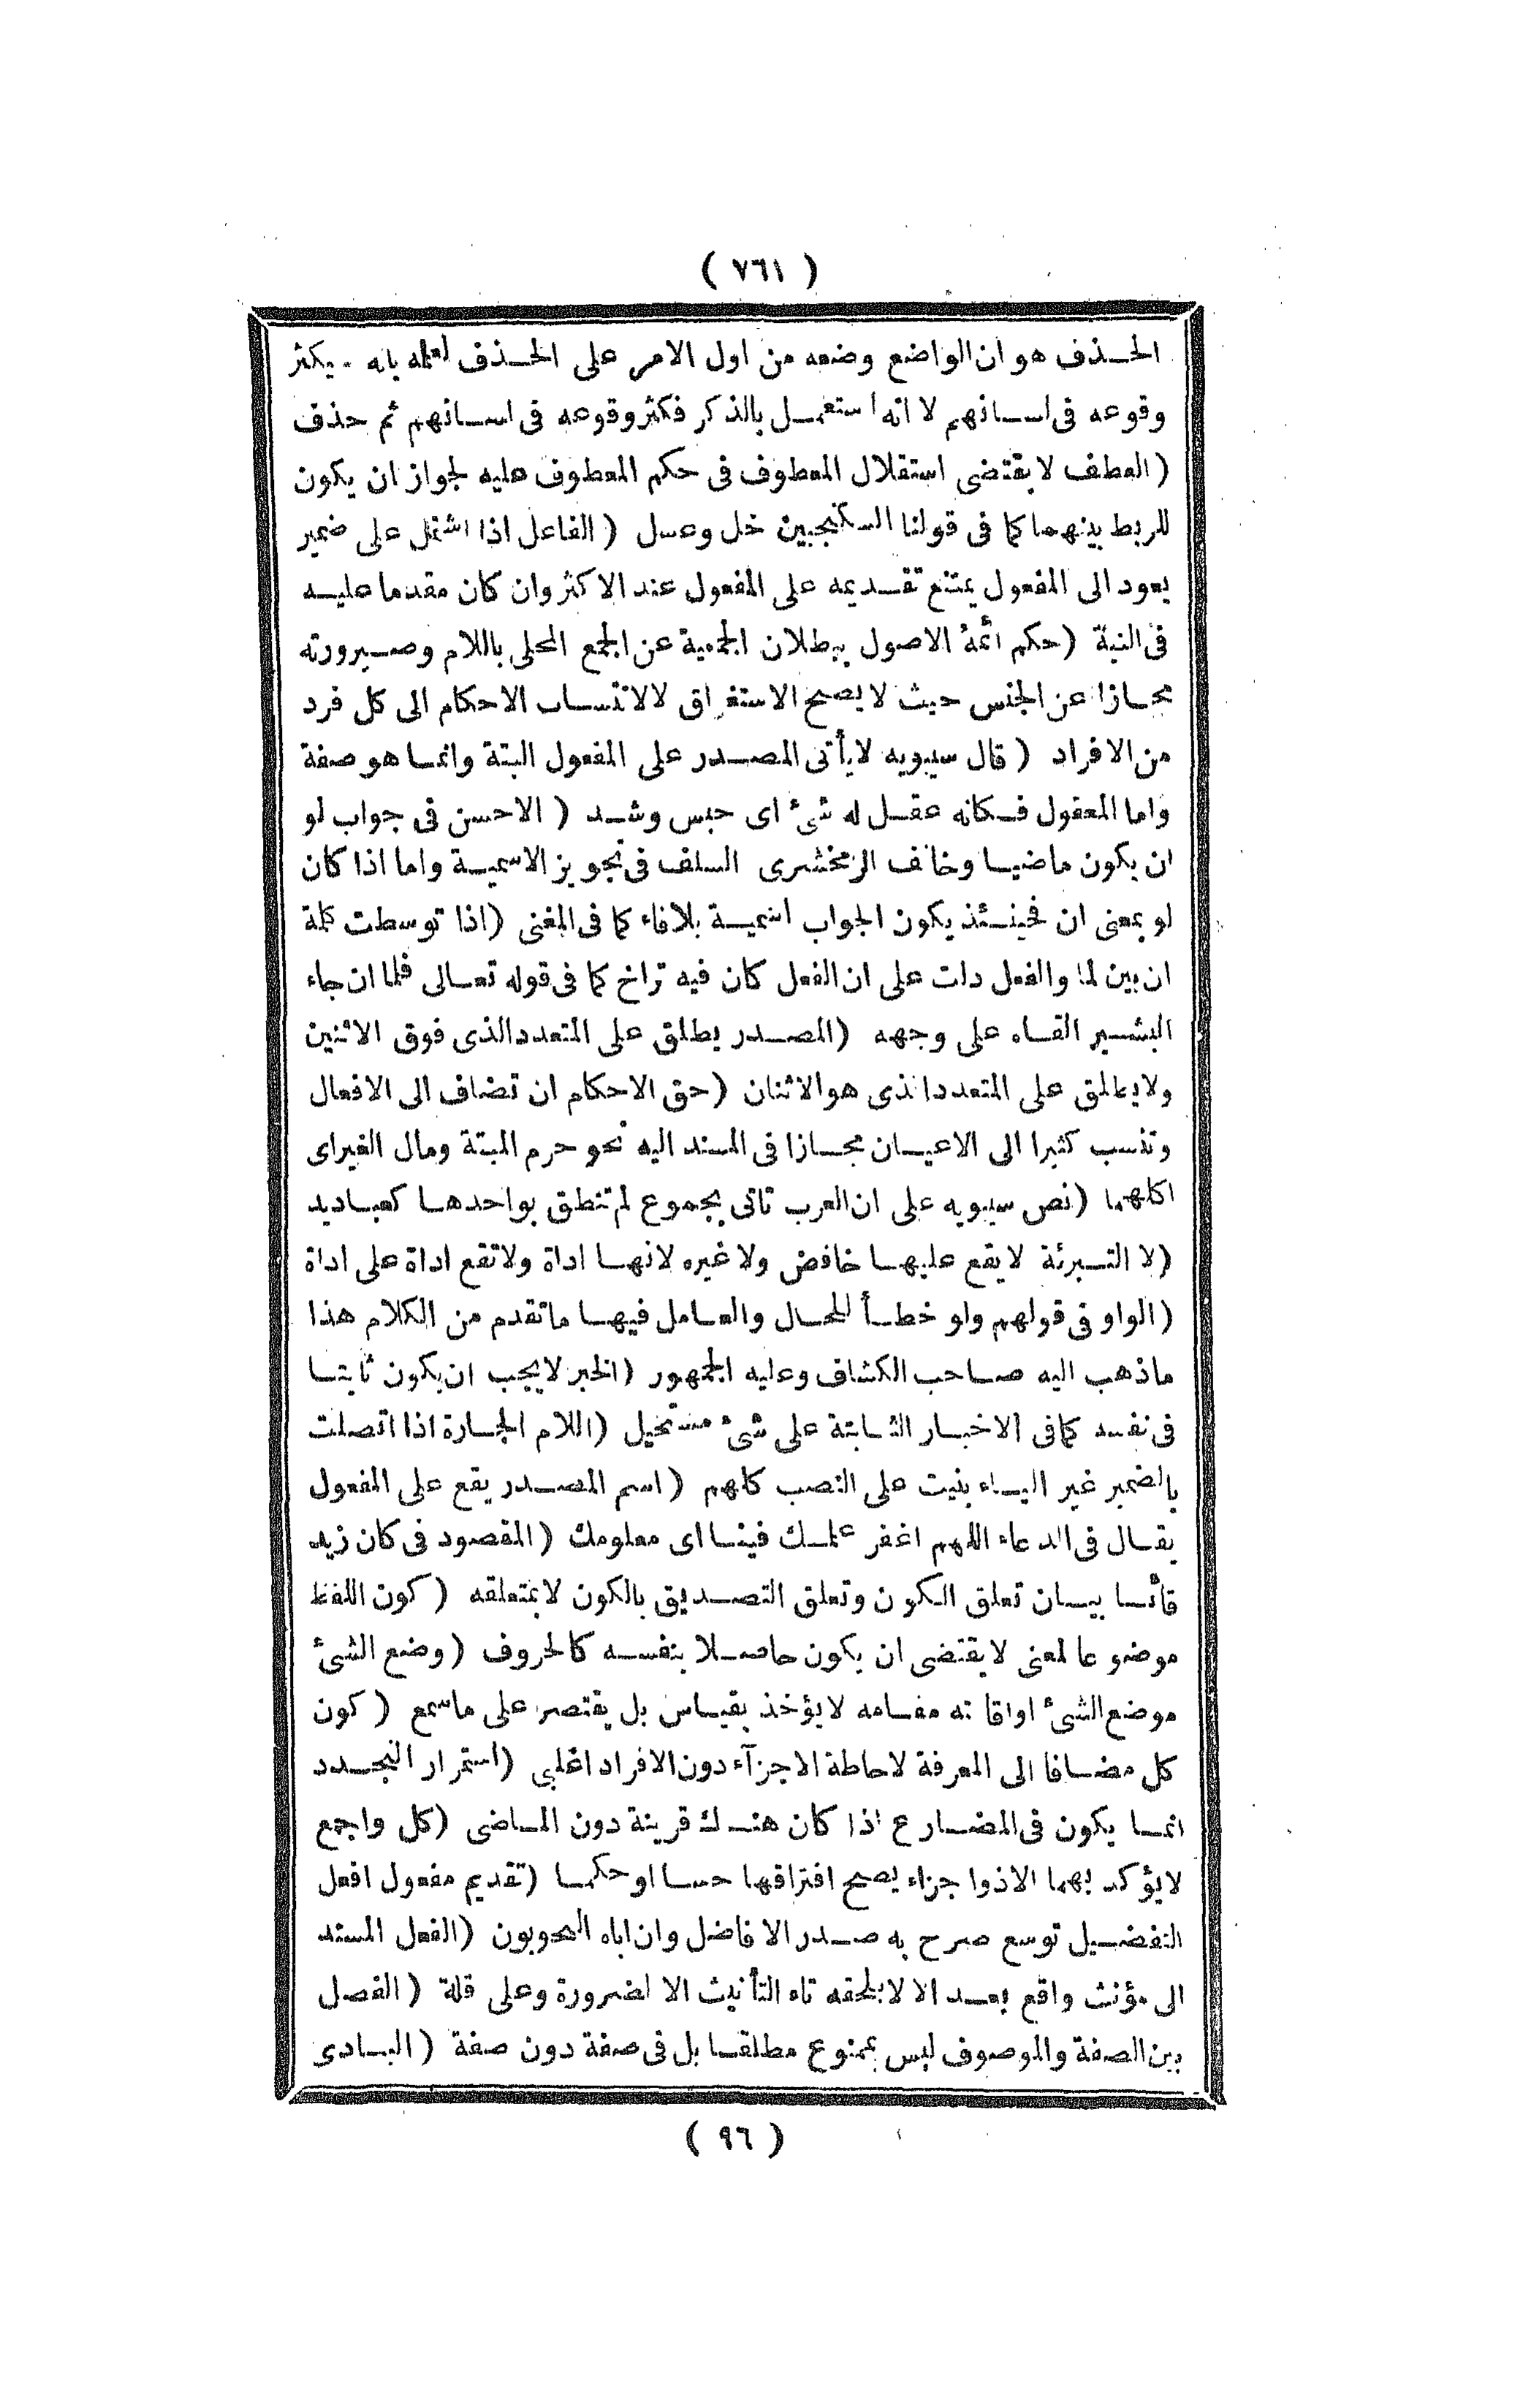 ( ٧٦١ )
الحذف هو ان الواضع وضعه من اول الامر على الحذف لعلمه بانه يكثر
وقوعه فى لسانهم لا انه استعمل بالذكر فكثر وقوعه فى لسانهم ثم حذف
( العطف لا يقتضى استقلال المعطوف فى حكم المعطوف عليه لجواز ان يكون
للربط بينهما كما فى قولنا السكنجبين خل وعسل ( الفاعل اذا اشتمل على ضمير
يعود الى المفعول يمتنع تقديمه على المفعول عند الاكثر وان كان مقدما عليه
فى النية ( حكم ائمة الاصول ببطلان الجمعية عن الجمع المحلى باللام وصيرورته
مجازا عن الجنس حيث لا يصح الاستغراق لا لانتساب الاحكام الى كل فرد
من الافراد ( قال سيبويه لا يأتى المصدر على المفعول البتة وانما هو صفة
واما المعقول فكانه عقل له شئ اى حبس وشد ( الاحسن فى جواب لو
ان يكون ماضيا وخالف الزمخشرى السلف فى تجويز الاسمية واما اذا كان
لو بمعنى ان فحينئذ يكون الجواب اسمية بلا فاء كما فى المغنى ( اذا توسطت كلمة
ان بين لما والفعل دلت على ان الفعل كان فيه تراخ كما فى قوله تعالى فلما ان جاء
البشير القاه على وجهه ( المصدر يطلق على المتعدد الذى فوق الاثنين
ولا يطلق على المتعدد الذى هو الاثنان ( حق الاحكام ان تضاف الى الافعال
وتنسب كثيرا الى الاعيان مجازا فى المسند اليه نحو حرم الميتة ومال الغير اى
اكلهما ( نص سيبويه على ان العرب تاتى بجموع لم تنطق بواحدها كعباديد
( لا التبرئة لا يقع عليها خافض ولا غيره لانها اداة ولا تقع اداة على اداة
( الواو فى قولهم ولو خطأ للحال والعامل فيها ما تقدم من الكلام هذا
ما ذهب اليه صاحب الكشاف وعليه الجمهور ( الخبر لا يجب ان يكون ثابتا
فى نفسه كما فى الاخبار الثابتة على شئ مستحيل ( اللام الجارة اذا اتصلت
بالضمير غير الياء بنيت على النصب كلهم ( اسم المصدر يقع على المفعول
يقال فى الدعاء اللهم اغفر علمك فينا اى معلومك ( المقصود فى كان زيد
قائما بيان تعلق الكون وتعلق التصديق بالكون لا بمتعلقه ( كون اللفظ
موضوعا لمعنى لا يقتضى ان يكون حاصلا بنفسه كالحروف ( وضع الشئ
موضع الشئ او اقامته مقامه لا يؤخذ بقياس بل يقتصر على ما سمع ( كون
كل مضافا الى المعرفة لاحاطة الاجزآء دون الافراد اغلبى ( استمرار التجدد
انما يكون فى المضارع اذا كان هناك قرينة دون الماضى ( كل واجمع
لا يؤكد بهما الا ذوا جزاء يصح افتراقها حسا او حكما ( تقديم مفعول افعل
التفضيل توسع صرح به صدر الافاضل وان اباه النحويون ( الفعل المسند
الى مؤنث واقع بعد الا لا يلحقه تاء التأنيث الا لضرورة وعلى قلة ( الفصل
بين الصفة والموصوف ليس بممنوع مطلقا بل فى صفة دون صفة ( البادى
( ٩٦ )